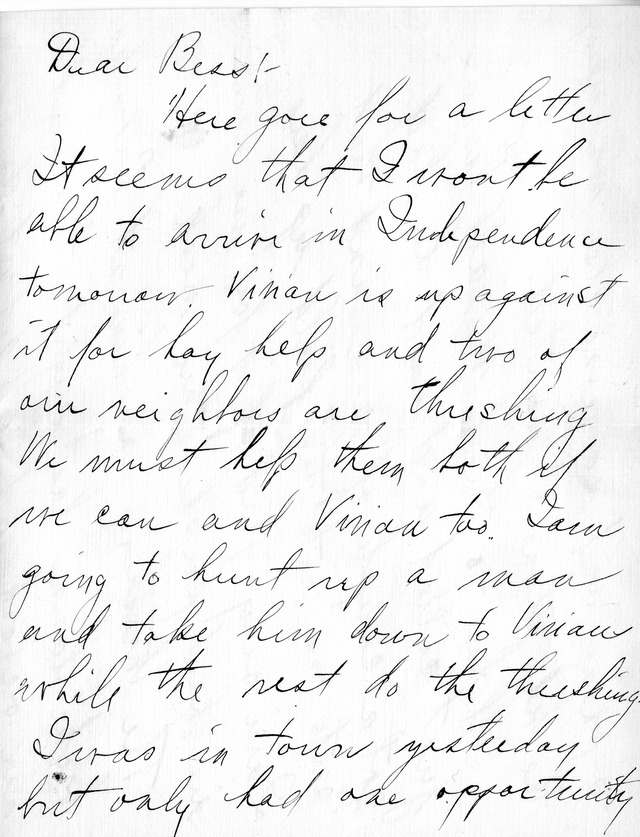 Dear Bess:-
Here goes for a letter
It seems that I wont be
able to arrive in Independence
tomorrow. Vivian is up against
it for hay help and two of
our neighbors are threshing
We must help them both if
we can and Vivian too. I am
going to hunt up a man
and take him down to Vivian
while the rest do the threshing.
I was in town yesterday
but only had one opportunity